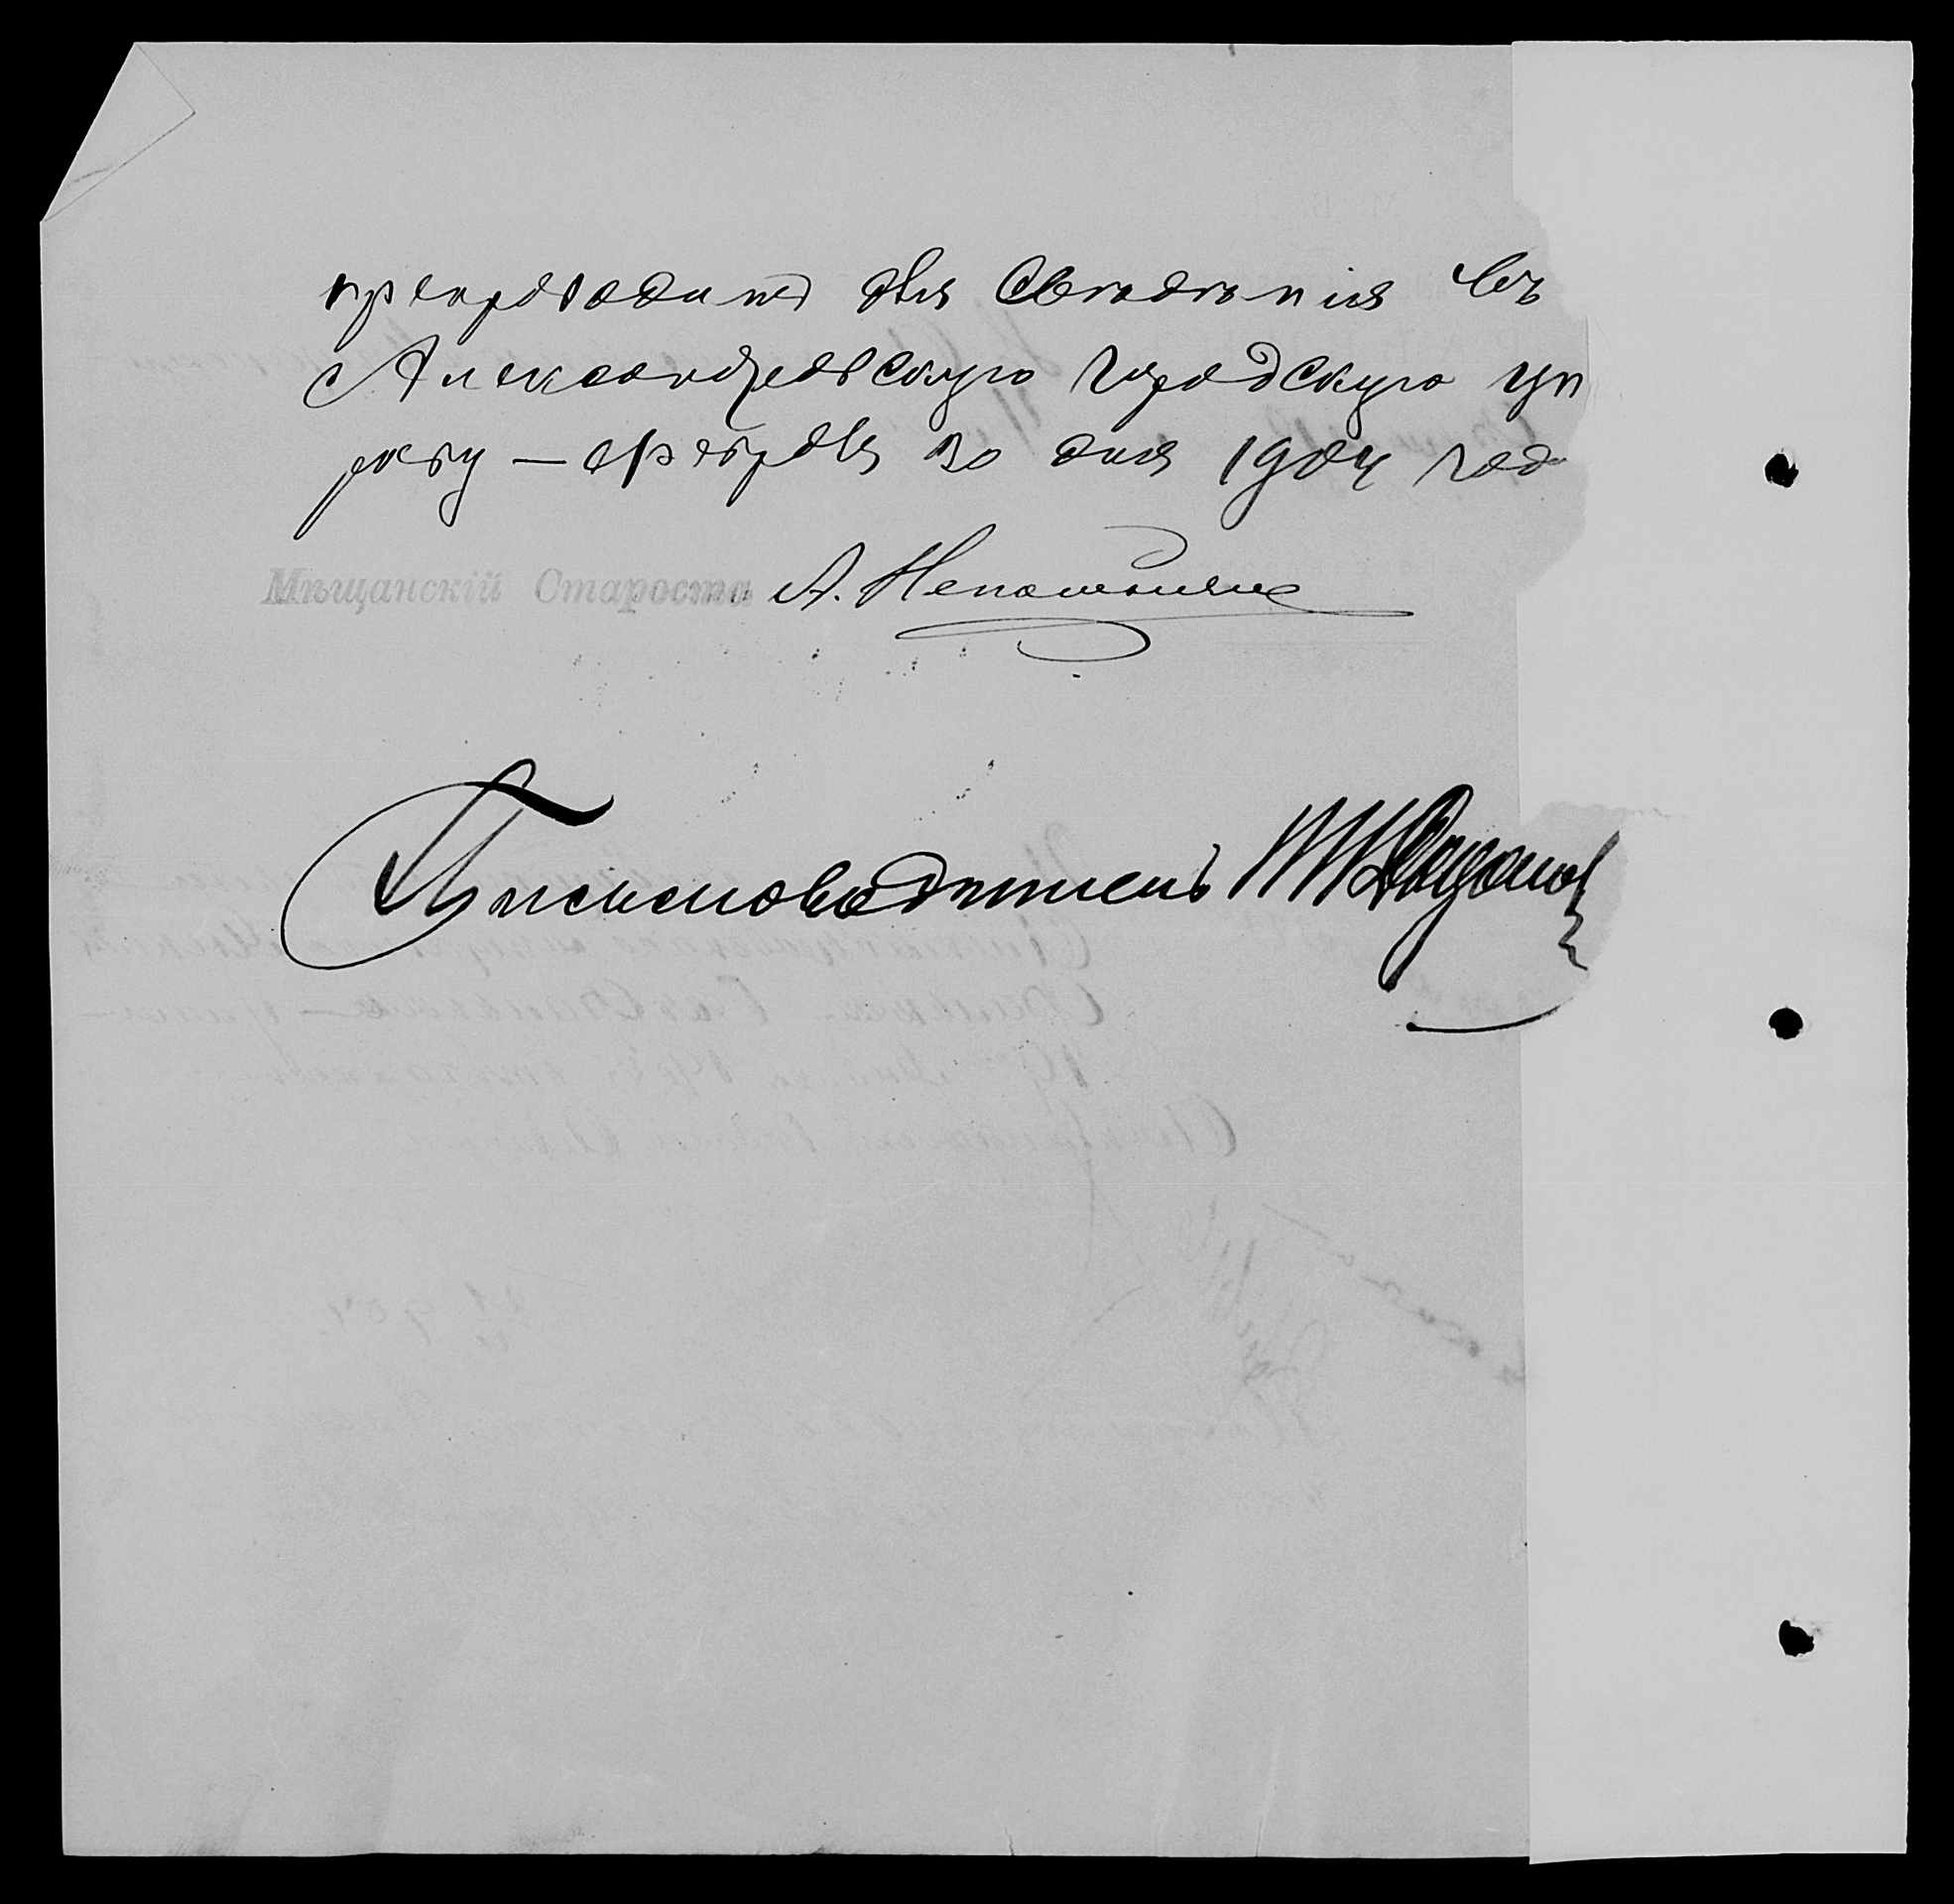 препроводитъ для Свѣдѣнія въ
Александровскую Городскую Уп
раву — Февраля 20 дня 1904 год
Мѣщанскій Староста А.
Письмоводитель